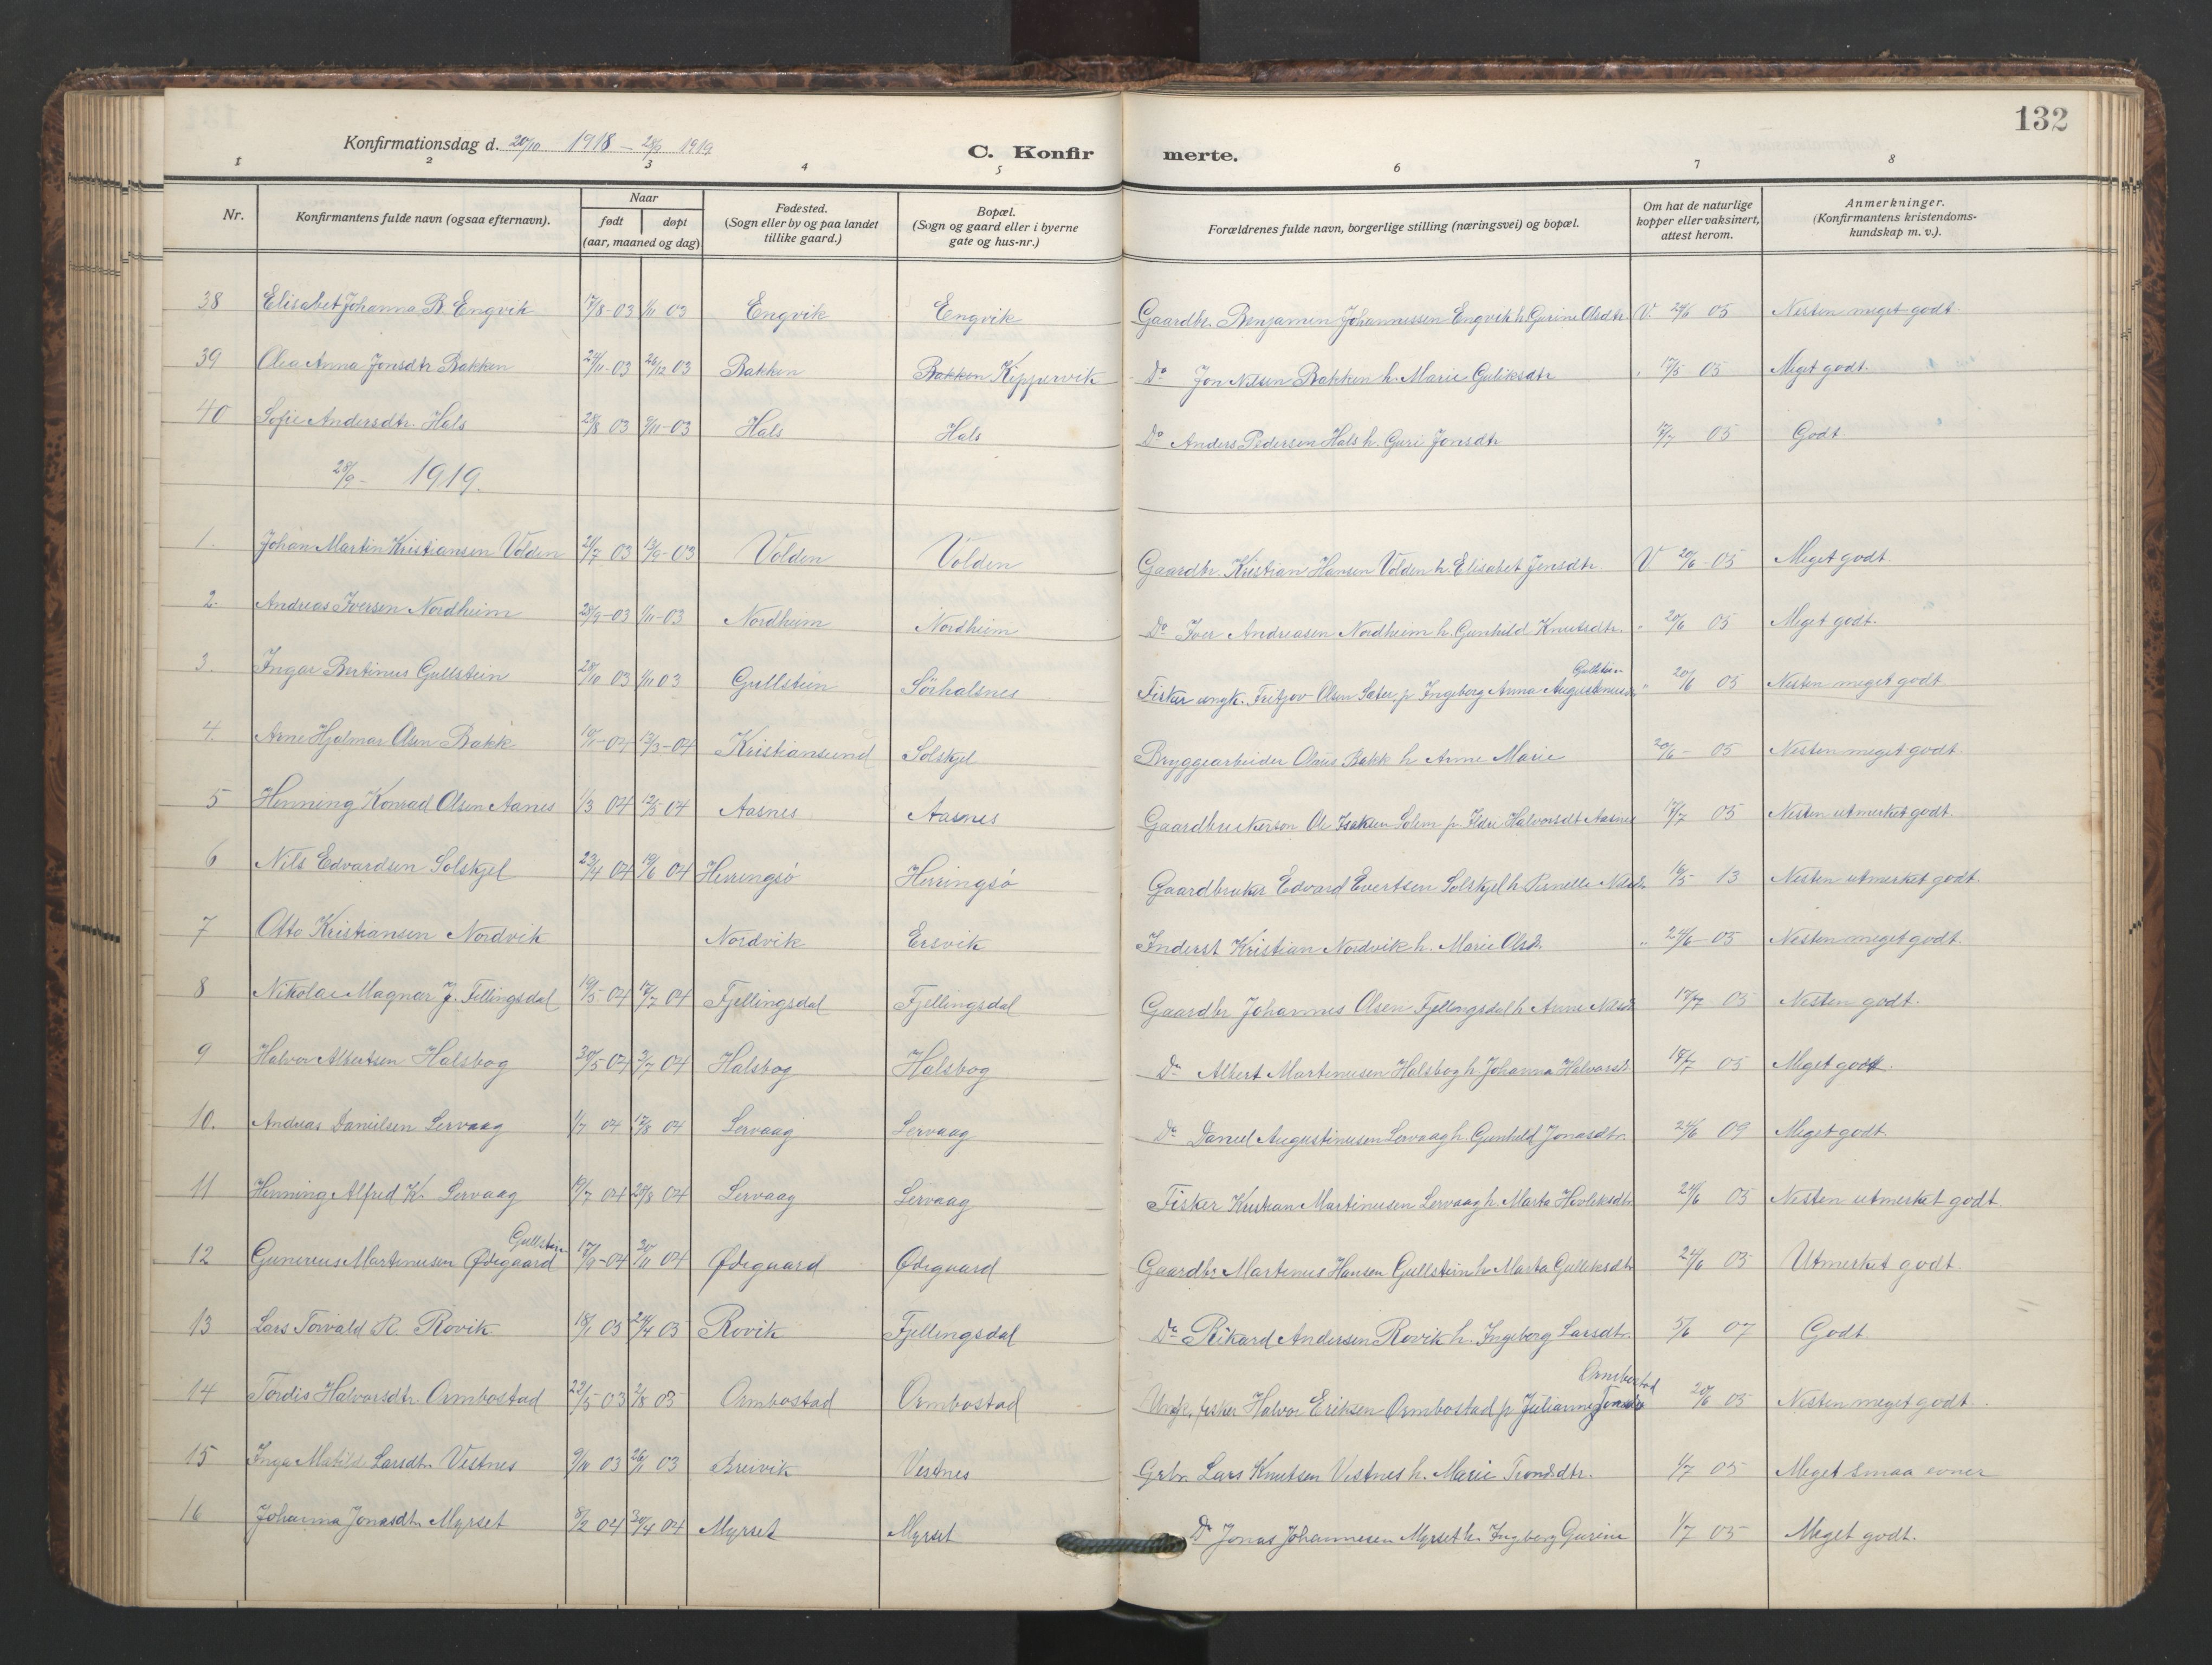 132
Konfirmationsdag d. 20/10 1918 – 28/9 1919
C. Konfirmerte.
1 2 3 4 5 6 7 8
Nr. | Konfirmantens fulde navn (ogsaa efternavn). | Naar født | døpt (aar, maaned og dag) | Fødested. (Sogn eller by og paa landet tillike gaard.) | Bopæl. (Sogn og gaard eller i byerne gate og hus-nr.) | Forældrenes fulde navn, borgerlige stilling (næringsvei) og bopæl. | Om hat de naturlige kopper eller vaksinert, attest herom. | Anmerkninger. (Konfirmantens kristendoms-kundskap m. v.).
38 Elisabet Johanna B. Engvik 17/8-03 1/11 03 Engvik Engvik Gaardbr. Benjamin Johannessen Engvik h. Gurine Olsdtr. V 24/6 05 Nesten meget godt
39 Olea Anna Jonsdtr Bakken 24/11-03 26/12 03 Bakken Bakken Kippervik Do Jon Nilsen Bakken h. Marie Guliksdtr " 17/5 05 Meget godt.
40 Sofie Andersdtr. Hals 28/8 03 9/11-03 Hals Hals Do Anders Pedersen Hals h. Guri Jonsdtr 17/7 05 Godt
28/9- 1919.
1. Johan Martin Kristiansen Volden 21/7 03 13/9-03 Volden Volden Gaardbr. Kristian Hansen Volden h. Elisabet Jensdtr. V 20/6-05 Meget godt.
2. Andreas Iversen Nordheim 28/9-03 1/11-03 Nordheim Nordheim Do Iver Andreasen Nordheim h. Gunhild Knutsdtr. " 20/6 05 Meget godt.
3. Ingar Bertinus Gullstein 28/10 03 1/11 03 Gullstein Sörhalsnes Fisker ungk. Fritjov Olsen Sæter p Ingeborg Anna Augustinusdtr Gullstein " 20/6 05 Nesten meget godt
4. Arne Hjalmar Olsen Bakk 10/11-04 13/3-04 Kristiansund Solskjel Bryggearbeider Olaus Bakk h Anne Marie 20/6- 05 Nesten meget godt
5 Henning Konrad Olsen Aanes 1/3 04 12/5 04 Aasnes Aasnes Gaardbrukersøn Ole Isaksen Solem p. Ildri Halvorsdt Aasnes 17/7 05 Nesten utmerket godt.
6 Nils Edvardsen Solskjel 23/4 04 19/6 04 Herringsö Herringsö Gaardbruker Edvard Evertsen Solskjel h. Pernelle Nilsdtr 16/5 13 Nesten utmerket godt.
7 Otto Kristiansen Nordvik Nordvik Ersvik Inderst Kristian Nordvik h. Marie Olsdtr. " 24/6-05 Nesten meget godt.
8 Nikolai Magnar J. Fellingsdal 19/5-04 17/7 04 Fjellingsdal Fjellingsdal Gaardbr Johannes Olsen Fjellingsdal h Anne Nilsdtr 17/7 05 Nesten godt.
9 Halvor Albertsen Halsbog 30/5-04 3/7 04 Halsbog Halsbog Do Albert Martinusen Halsbog h. Johanna Halvorsdtr 18/7 05 Meget godt.
10. Andreas Danielsen Lervaag 1/7 04 12/8 04 Lervaag Lervaag Do Daniel Augustinusen Lervaag h. Gunhild Jonasdtr. 24/6 09 Meget godt
11 Henning Alfred K. Lervaag 19/7 04 28/8 04 Lervaag Lervaag Fisker Kristian Martinusen Lervaag h. Marta 24/6 05 Nesten utmerket godt.
12 Gunerius Martinusen Ødegaard Gullstein 17/9-04 20/11 04 Ødegaard Ødegaard Gaardbr. Martinus Hansen Gullstein h Marta Gulliksdtr 24/6 05 Utmerket godt
13 Lars Torvald R. Rovik 18/1 05 24/4 05 Rovik Fjellingsdal Do Rikard Andersen Rovik h. Ingeborg Larsdtr. 5/6 07 Godt
14 Tordis Halvorsdtr. Ormbostad 22/5 03 2/8 03 Ormbostad Ormbostad Ungk. fisker Halvor Eriksen Ormbostad p Julianne Jonsdtr Ormbostad 20/6 05 Nesten meget godt.
15 Inga Matilde Larsdtr. Vestnes 9/10 03 26/11 03 Breivik Vestnes Grbr. Lars Knutsen Vestnes h. Marie Trondsdtr. 1/7 05 Meget smaa evner
16 Johanna Jonasdtr. Myrset 8/2 04 30/4 04 Myrset Myrset Do Jonas Johannesen Myrset h. Ingeborg Gurine 1/7 05 Meget godt.